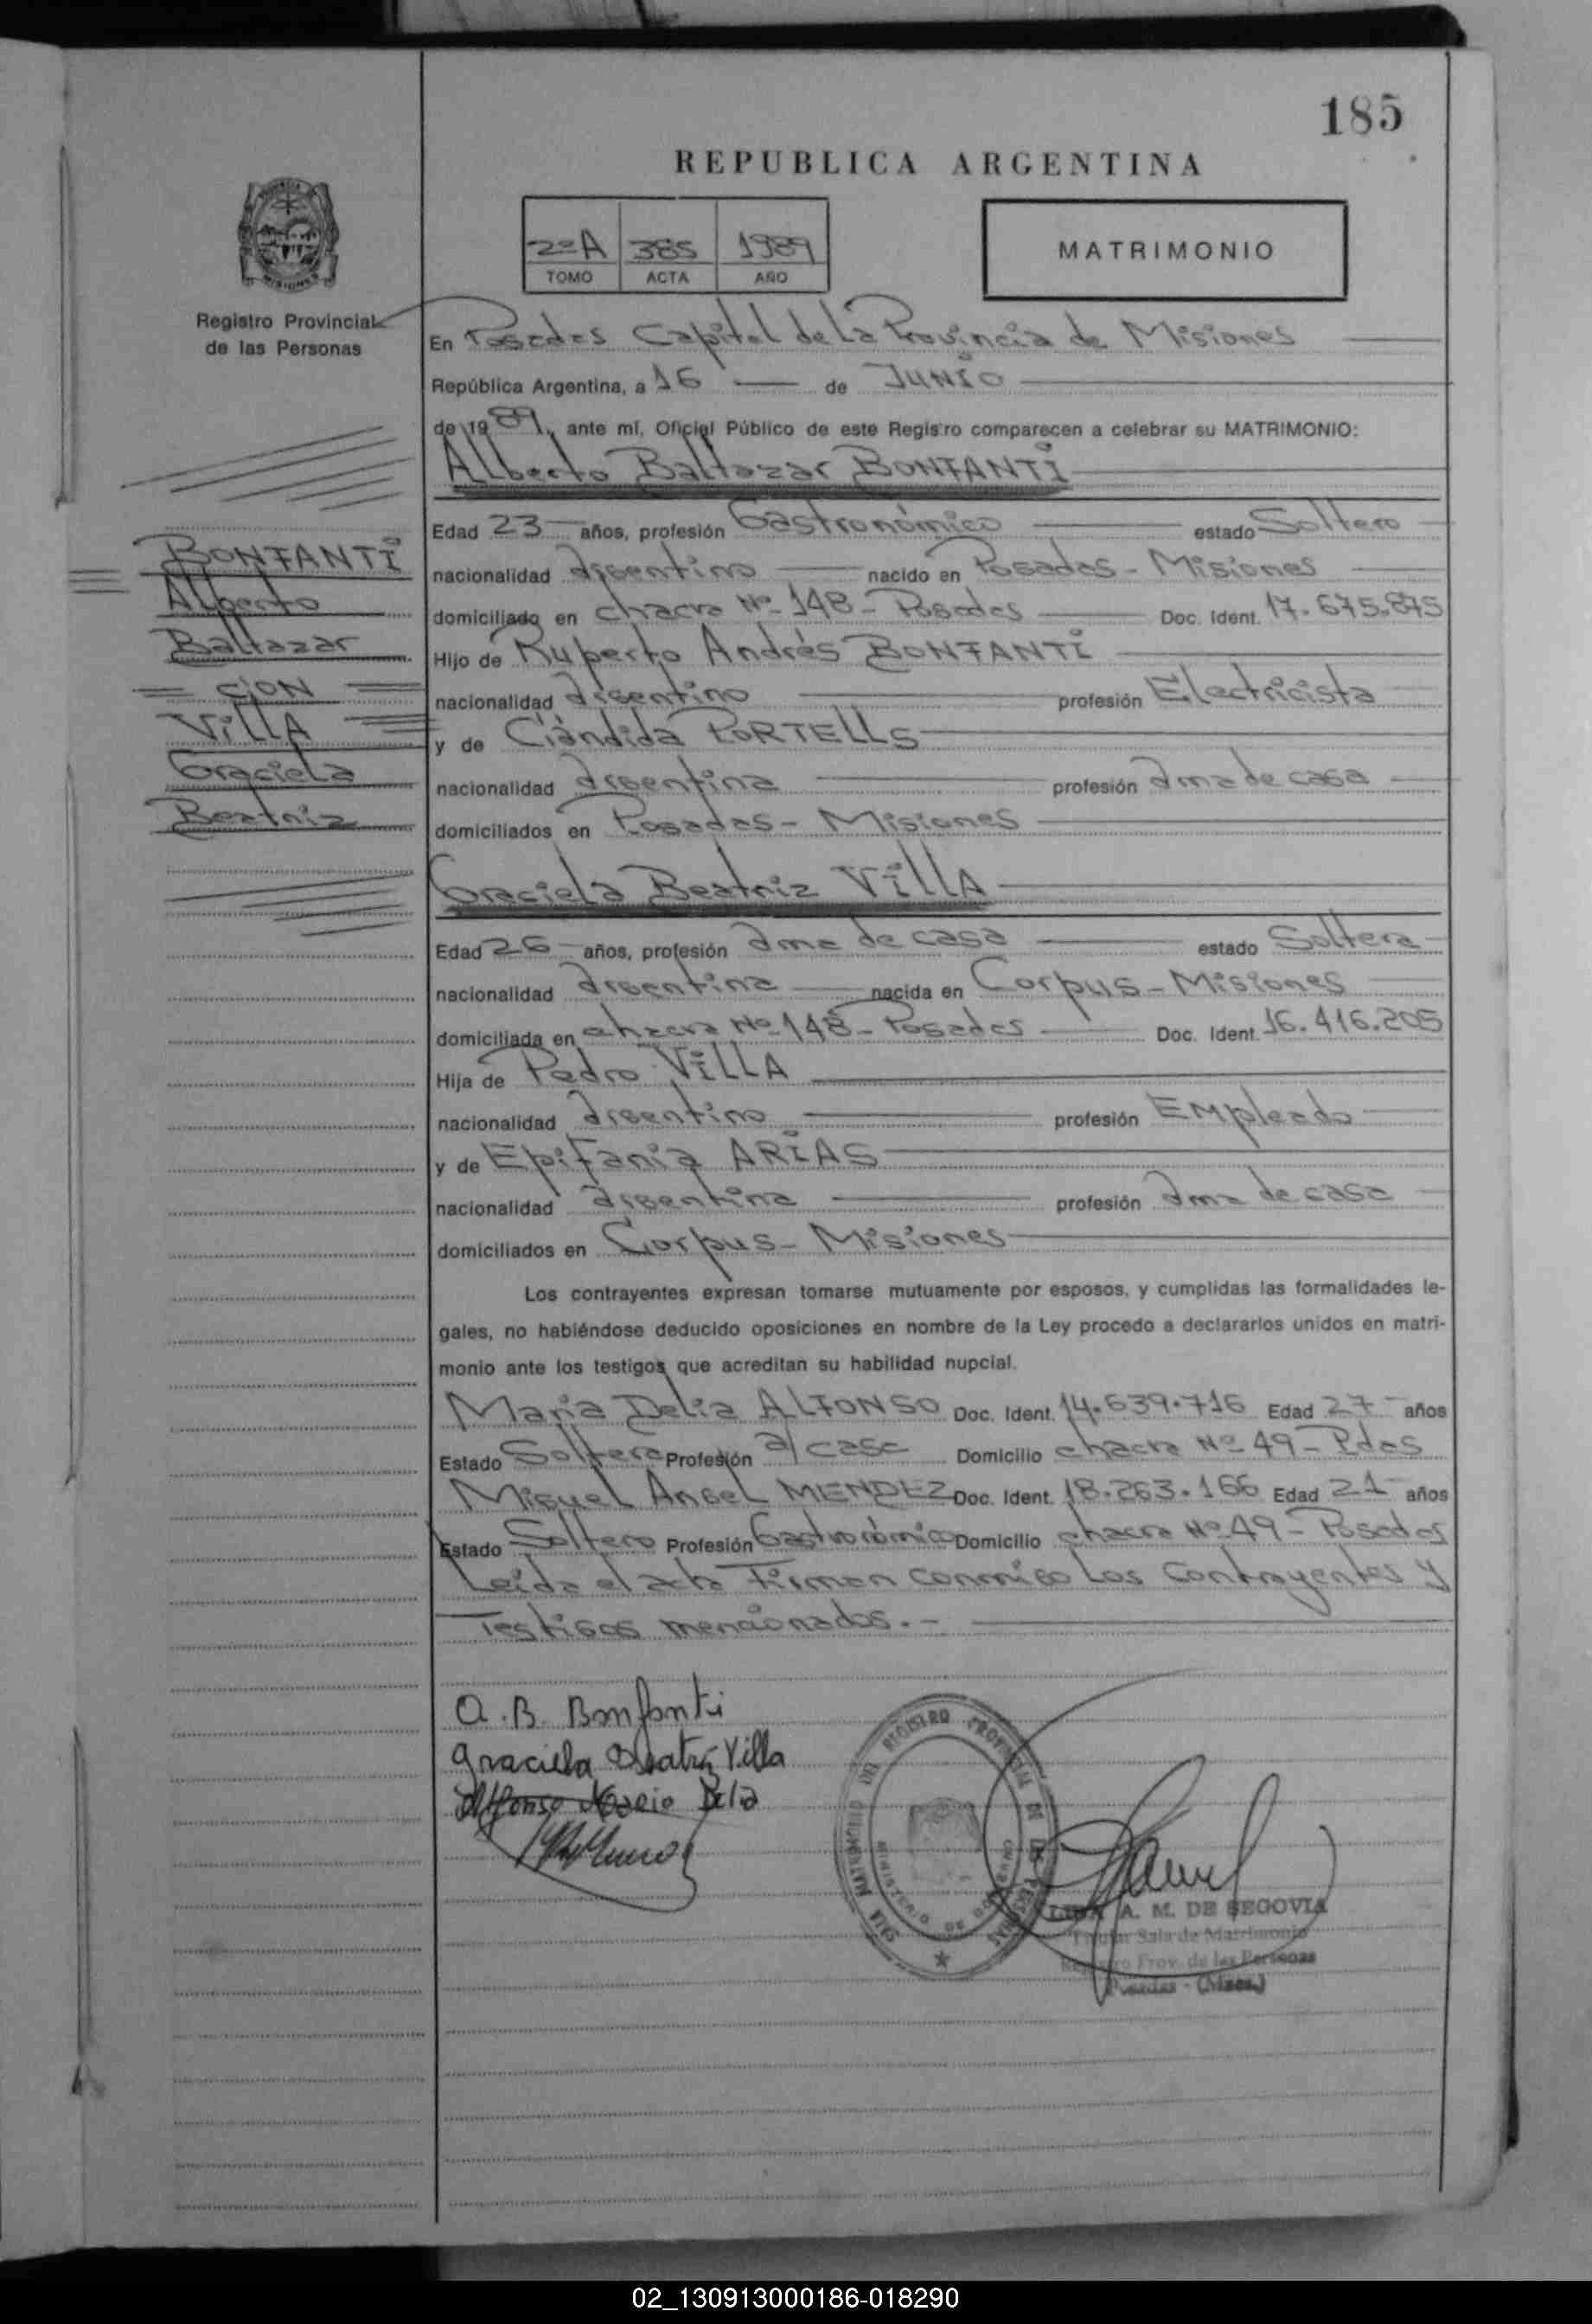 185
REPUBLICA ARGENTINA
2ºA 385 1989
TOMO ACTA AÑO
MATRIMONIO
MISIONES
Registro Provincial
de las Personas
En Posadas Capital de La Provincia de Misiones
República Argentina, a 16 — de JUNIO
de 1989, ante mí, Oficial Público de este Registro comparecen a celebrar su MATRIMONIO:
Alberto Baltazar BONFANTI
Edad 23 años, profesión Gastronómico estado Soltero
nacionalidad argentino nacido en Posadas - Misiones
domiciliado en chacra Nº 148 - Posadas Doc. Ident. 17.675.875
Hijo de Ruperto Andrés BONFANTI
nacionalidad argentino profesión Electricista
y de Cándida PORTELLS
nacionalidad argentina profesión ama de casa
domiciliados en Posadas - Misiones
BONFANTI
Alberto
Baltazar
CON
VILLA
Graciela
Beatriz
Graciela Beatriz VILLA
Edad 26 años, profesión ama de casa estado Soltera
nacionalidad argentina nacida en Corpus - Misiones
domiciliada en chacra Nº 148 - Posadas Doc. Ident. 16.416.205
Hija de Pedro VILLA
nacionalidad argentino profesión Empleado
y de Epifania ARIAS
nacionalidad argentina profesión ama de casa
domiciliados en Corpus - Misiones
Los contrayentes expresan tomarse mutuamente por esposos, y cumplidas las formalidades le-
gales, no habiéndose deducido oposiciones en nombre de la Ley procedo a declararlos unidos en matri-
monio ante los testigos que acreditan su habilidad nupcial.
Maria Delia ALFONSO Doc. Ident. 14.639.716 Edad 27 años
Estado Soltera Profesión a/casa Domicilio chacra Nº 49 - Pdas
Miguel Angel MENDEZ Doc. Ident. 18.263.166 Edad 21 años
Estado Soltero Profesión Gastronómico Domicilio chacra Nº 49 - Posadas
Leida el acta Firman conmigo Los Contrayentes y
Testigos mencionados. -
A. B. Bonfanti
Graciela Beatriz Villa
Alfonso Maria Delia
REGISTRO PROVINCIAL DE LAS PERSONAS
MINISTERIO DE GOBIERNO
A. M. DE SEGOVIA
Titular Sala de Matrimonio
Registro Prov. de las Personas
Posadas - (Mnes.)
02_130913000186-018290